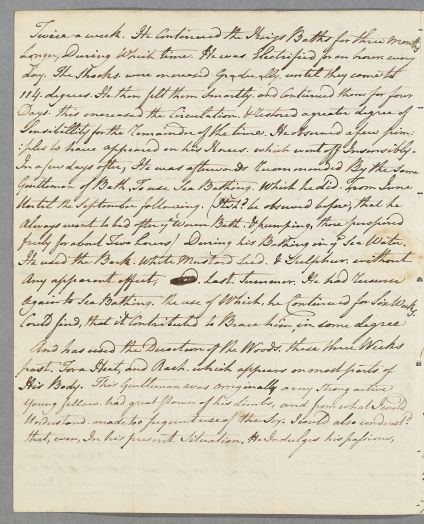 Twice a week. He Continued the Kings Baths for three Months
longer, During Which time. He was Electrified for an hour every
Day. The Shocks. were increased Gradually, until they came to
114. degrees He then felt them Smartly. and Continued them for four
Days. this increased the Circulation, & restored a greater degree of
Sensibility for the Remainder of the time. He observed a few pim:
:ples to have appeared on his Knees. which went off Insensibly.
In a few days after, He was afterwards Recommended By the same
Gentleman of Bath, To use Sea Bathing. Which he did. From June
Until the September following. (It sh.d be observed before, that he
Always went to bed after y.e Warm Bath. & pumping, there perspired
freely for about Two hours) During his Bathing in y.e Sea Water.
He used the Bark. White Mustard seed. & Sulphur. without
Any apparent effect, last. Summer. He had Recourse
Again to Sea Bathing. the use of Which, he Continued for Six Weeks,
Could find, that it Contributed to Brace him, in some degree
And has used the Decoction of the Woods. these three Weeks
past. For a Heat, and Rash. which appears on most parts of
His Body. This Gentleman was originally a very Strong active
young fellow. had great power of his limbs, and from what I could
Understand. made too frequent use of the Sex. I could also underst.d
that, even, In his present Situation, He Indulges his passions,